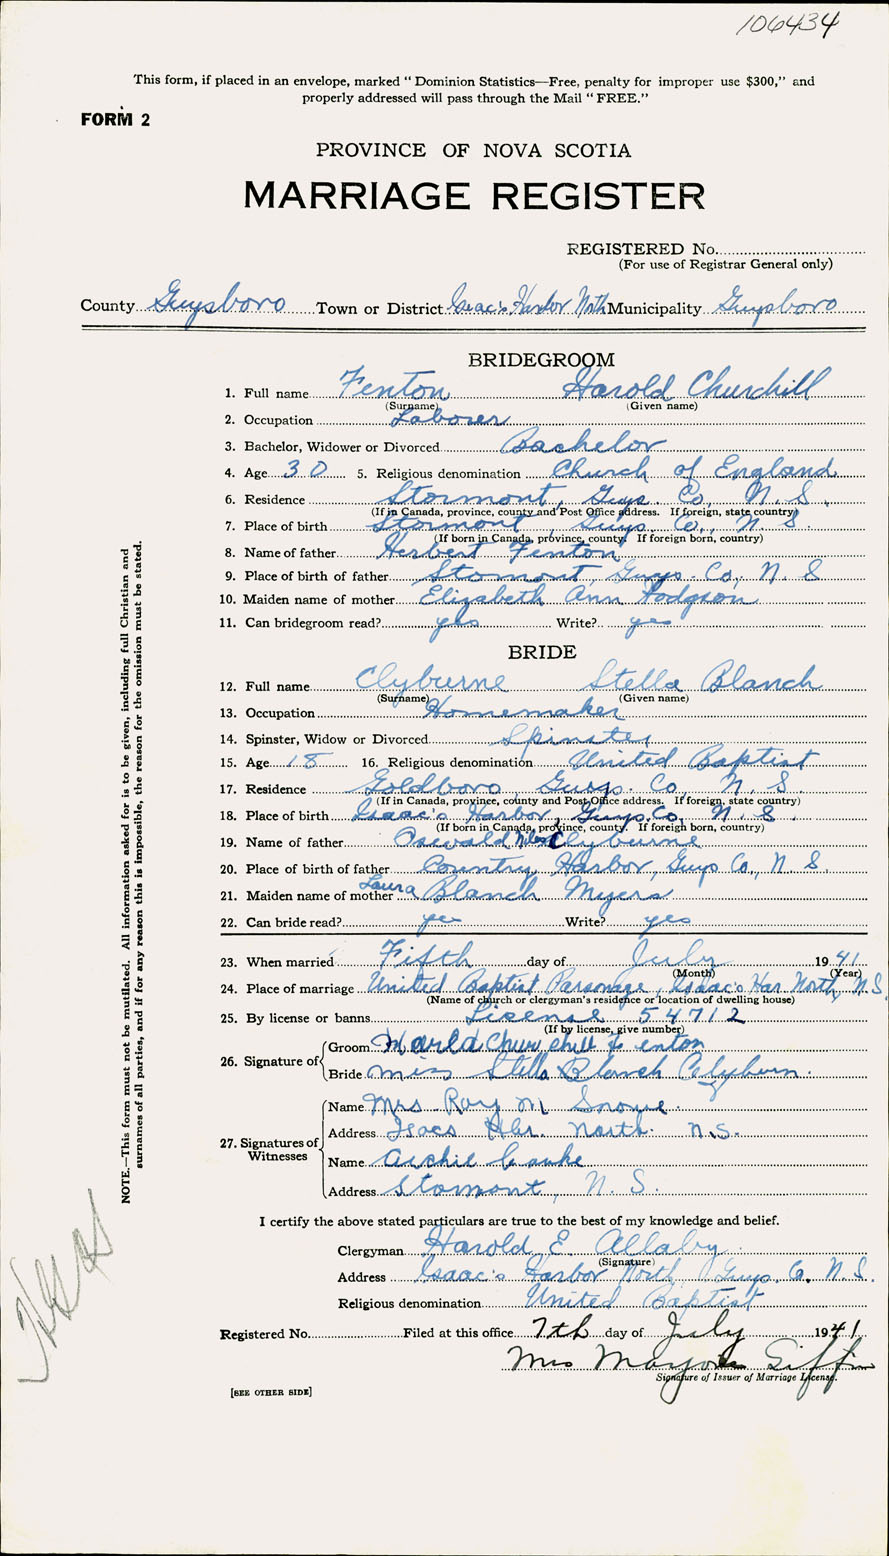 106434
This form, if placed in an envelope, marked "Dominion Statistics—Free, penalty for improper use $300," and
properly addressed will pass through the Mail "FREE."
FORM 2
PROVINCE OF NOVA SCOTIA
MARRIAGE REGISTER
REGISTERED No.
(For use of Registrar General only)
County Guysboro Town or District Isaac's Harbor North Municipality Guysboro
BRIDEGROOM
1. Full name Fenton Harold Churchill
(Surname) (Given name)
2. Occupation Laborer
3. Bachelor, Widower or Divorced Bachelor
4. Age 30 5. Religious denomination Church of England
6. Residence Stormont, Guys. Co, N. S.
(If in Canada, province, county and Post Office address. If foreign, state country)
7. Place of birth Stormont, Guys Co., N. S
(If born in Canada, province, county. If foreign born, country)
8. Name of father Herbert Fenton
9. Place of birth of father Stomont, Guys. Co, N. S
10. Maiden name of mother Elizabeth Ann Hodgson
11. Can bridegroom read? yes Write? yes
BRIDE
12. Full name Clyburne Stella Blanch
(Surname) (Given name)
13. Occupation Homemaker
14. Spinster, Widow or Divorced Spinster
15. Age 18 16. Religious denomination United Baptist
17. Residence Goldboro, Guys. Co, N. S.
(If in Canada, province, county and Post Office address. If foreign, state country)
18. Place of birth Isaac's Harbor, Guys. Co, N. S.
(If born in Canada, province, county. If foreign born, country)
19. Name of father Oswald Niles Clyburne
20. Place of birth of father Country Harbor, Guys Co., N S.
21. Maiden name of mother Laura Blanch Myers
22. Can bride read? yes Write? yes
23. When married Fifth day of July 1941
(Month) (Year)
24. Place of marriage United Baptist Parsonage, Isaac's Har. North, N.S.
(Name of church or clergyman's residence or location of dwelling house)
25. By license or banns License 54712
(If by license, give number)
26. Signature of Groom Harld Churchill Fenton
Bride Miss Stella Blanch Clyburn.
27. Signatures of Witnesses Name Mrs Roy M Snowe.
Address Isacs Hbr. North. N.S.
Name Archie Cooke
Address Stomont, N. S.
I certify the above stated particulars are true to the best of my knowledge and belief.
Clergyman Harold E. Allaby
(Signature)
Address Isaac's Harbor North, Guys. Co. N. S.
Religious denomination United Baptist
Registered No. Filed at this office 7th day of July 1941
Mrs Marjorie Giffin
Signature of Issuer of Marriage License.
[SEE OTHER SIDE]
NOTE.—This form must not be mutilated. All information asked for is to be given, including full Christian and
surnames of all parties, and if for any reason this is impossible, the reason for the omission must be stated.